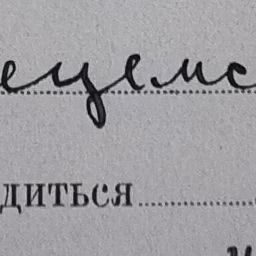 ецемс
диться